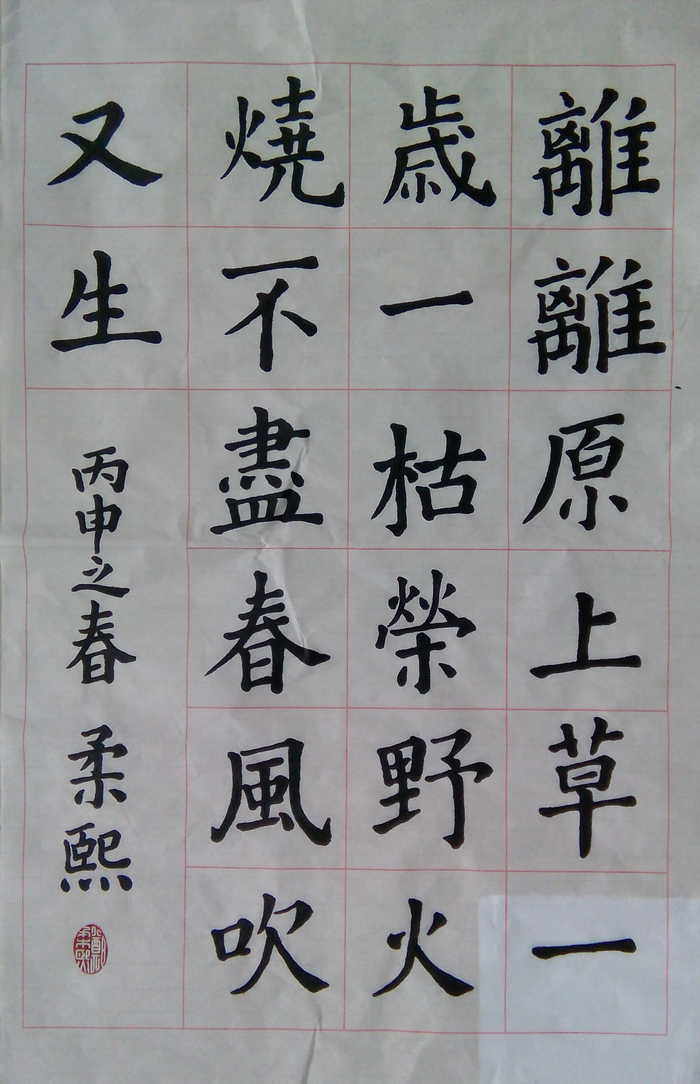 離離原上草一
歲一枯榮野火
燒不盡春風吹
又生
丙申之春 柔熙